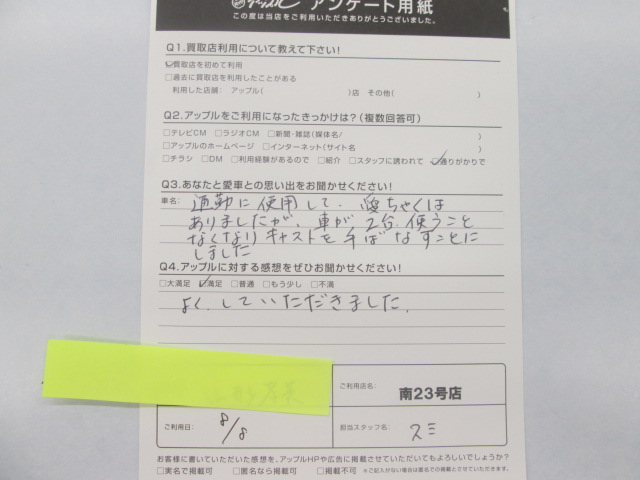 アップル アンケート用紙
この度は当店をご利用いただきありがとうございました。
Q1.買取店利用について教えて下さい!
☑買取店を初めて利用
□過去に買取店を利用したことがある
利用した店舗: アップル( )店 その他( )
Q2.アップルをご利用になったきっかけは?(複数回答可)
□テレビCM □ラジオCM □新聞・雑誌(媒体名/ )
□アップルのホームページ □インターネット(サイト名 )
□チラシ □DM □利用経験があるので □紹介 □スタッフに誘われて ☑通りがかりで
Q3.あなたと愛車との思い出をお聞かせください!
車名: 通勤に使用して、愛ちゃくは
ありましたが、車が2台、使うこと
なくなりキャストを手ばなすことに
しました
Q4.アップルに対する感想をぜひお聞かせください!
□大満足 ☑満足 □普通 □もう少し □不満
よくしていただきました。
ご利用店名: 南23号店
ご利用日: 8/8
担当スタッフ名: スミ
お客様に書いていただいた感想を、アップルHPや広告に掲載させていただいてもよろしいでしょうか?
□実名で掲載可 □匿名なら掲載可 □掲載不可 ※ご記入がない場合は匿名での掲載とさせていただきます。